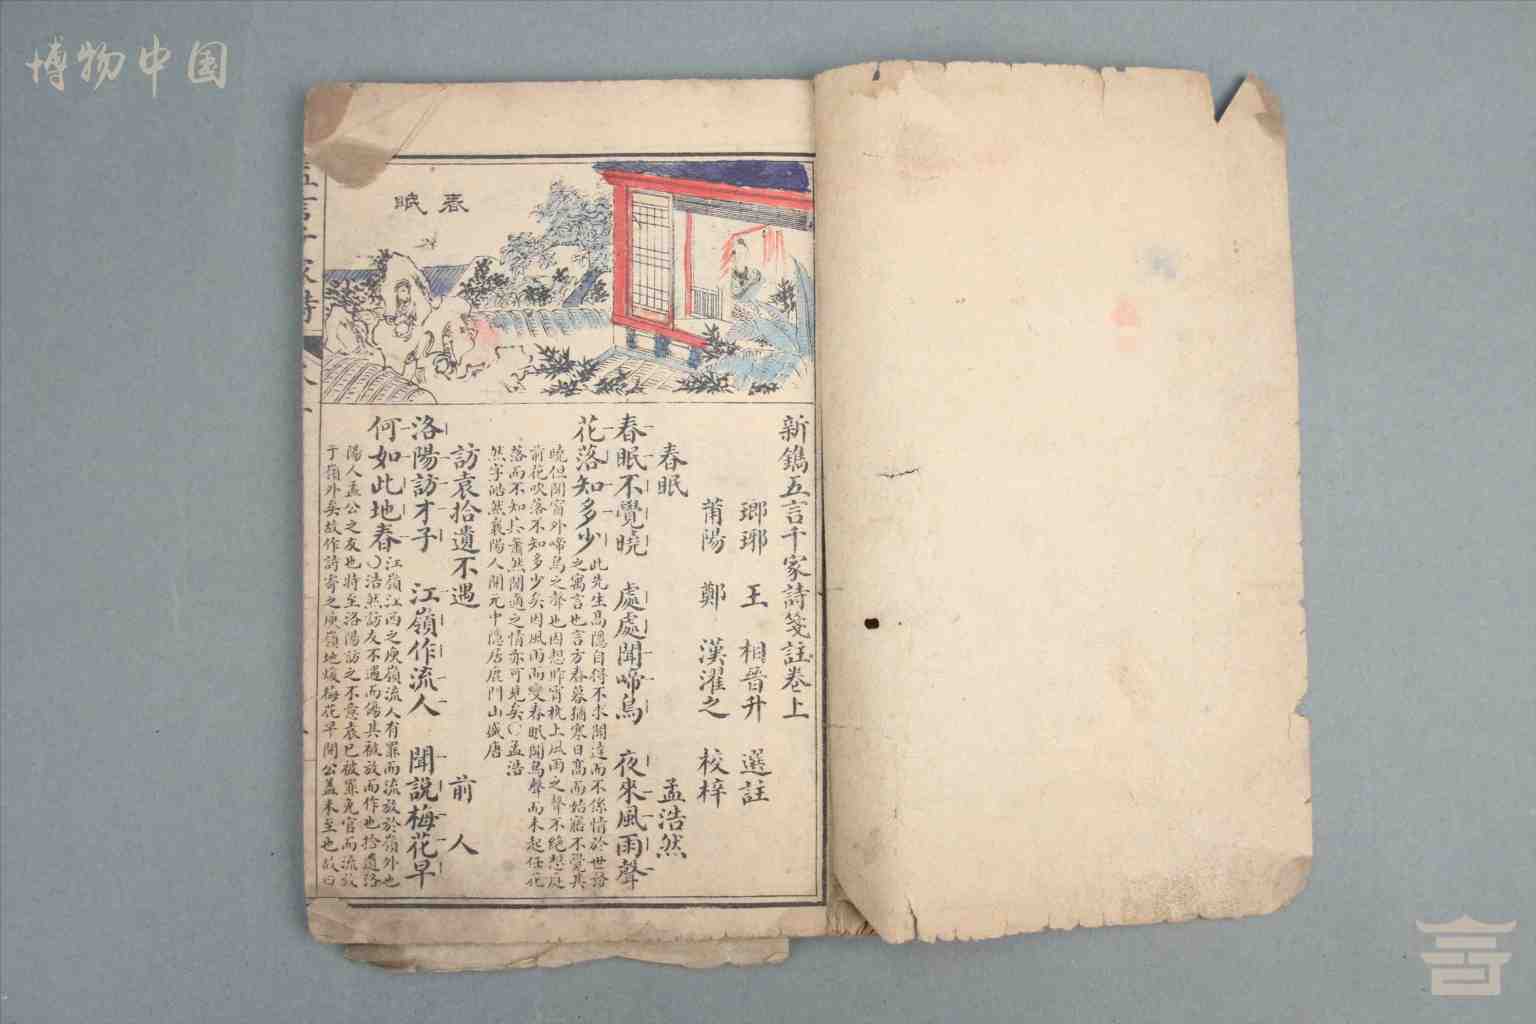 博物中国
春眠
新鐫五言千家詩箋註卷上
瑯琊　王　相晉升　選註
莆陽　鄭　漢濯之　校梓
春眠　孟浩然
春眠不覺曉　處處聞啼鳥　夜來風雨聲
花落知多少
此先生高隱自得不求聞達而不係情於世語
之寓言也言方春暮猶寒日高而始寤不覺其
曉但聞窗外啼鳥之聲也因想昨宵枕上風雨之聲不絕想庭
前花吹落不知多少矣因風雨而變春眠聞鳥聲而未起任花
落而不知其蕭然閒適之情亦可見矣〇孟浩
然字皓然襄陽人開元中隱居鹿門山盛唐
訪袁拾遺不遇　前人
洛陽訪才子　江嶺作流人　聞說梅花早
何如此地春
江嶺江西之庾嶺流人有罪而流放於嶺外也
〇浩然訪友不遇而傷其被放而作也拾遺洛
陽人孟公之友也將至洛陽訪之不意袁已被罪免官而流放
于嶺外矣故作詩寄之庾嶺地煖梅花早開公蓋未至也故曰
五言千家詩